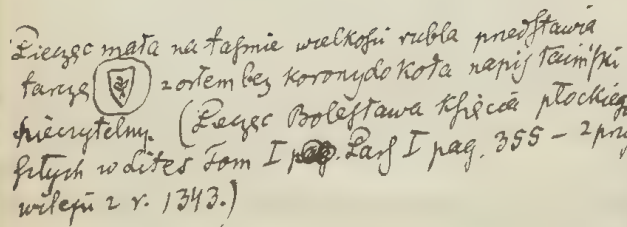 Pieczęć mała na taśmie wielkości rubla przedstawia
tarczę z orłem bez korony do koła napis łaciński
nieczytelny. (Pieczęć Bolesława Księcia płockiego
w Lites Tom I Pars I pag. 355 – z przy
wileju z r. 1343.)